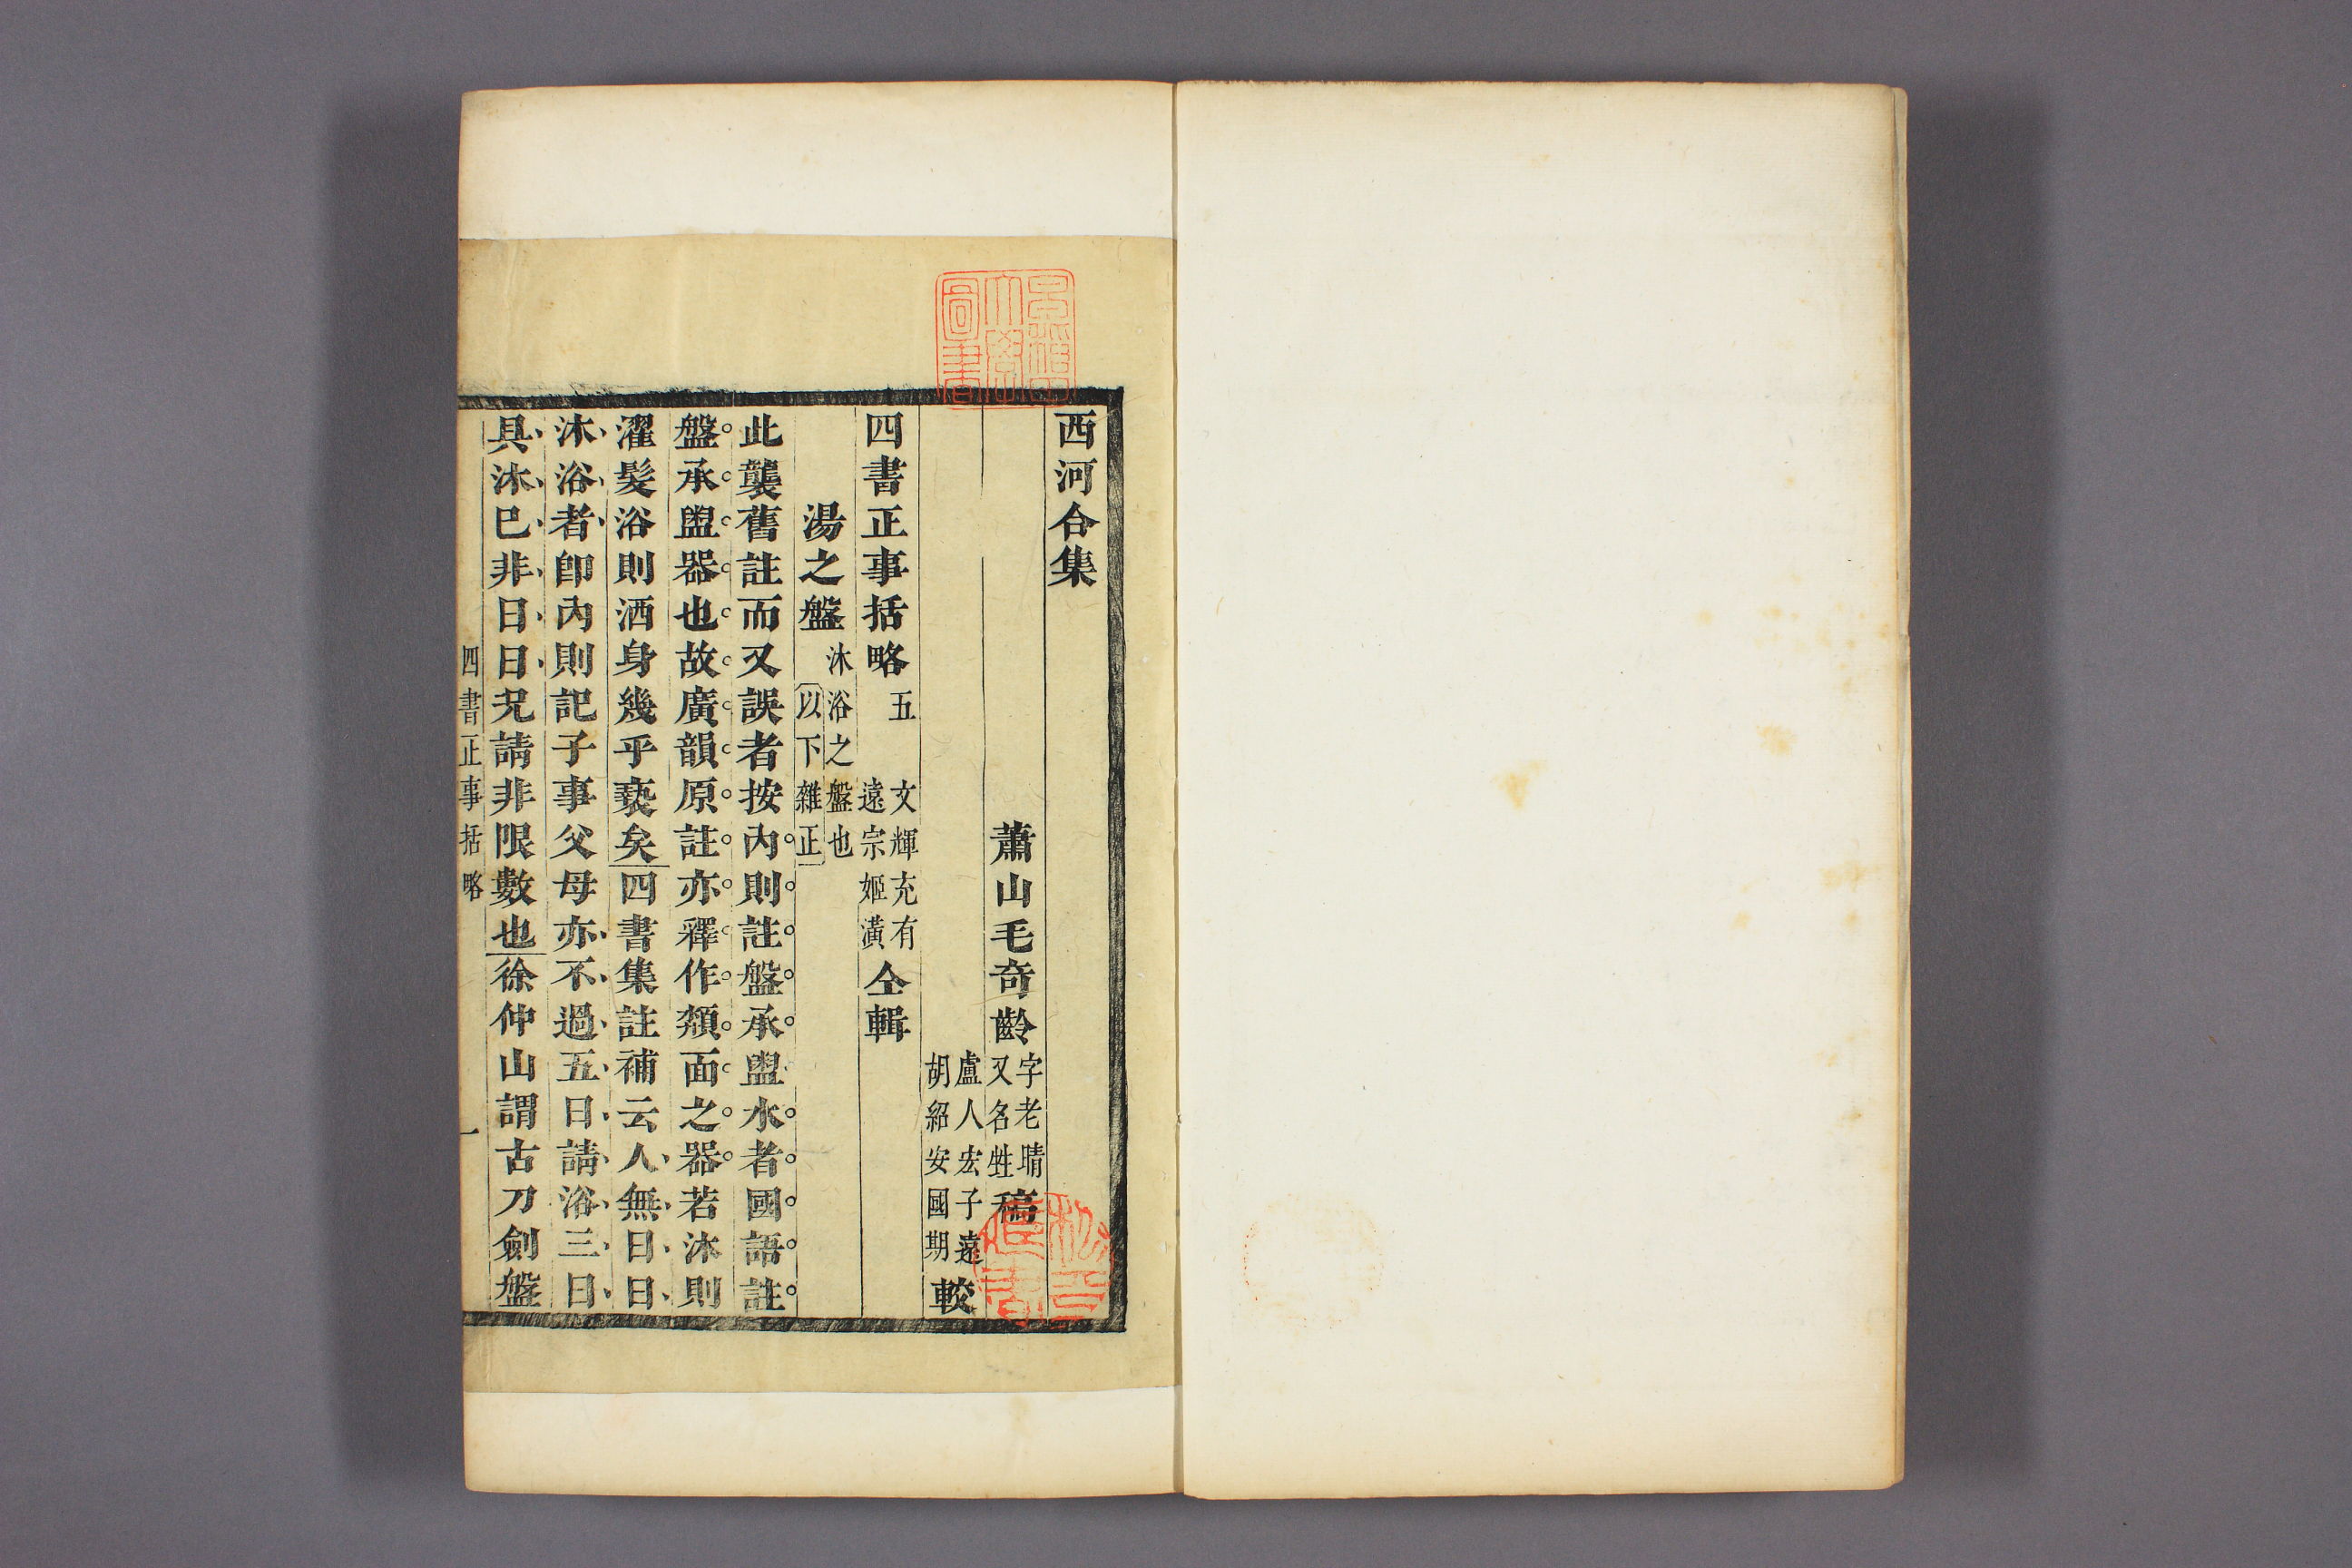 西河合集
蕭山毛奇齡字老晴又名甡稿
盧人宏子遠
胡紹安國期較
四書正事括略五
文輝充有
遠宗姬潢仝輯
湯之盤沐浴之盤也
以下雜正
此襲舊註而又誤者按內則註盤承盥水者國語註
盤承盥器也故廣韻原註亦釋作頮面之器若沐則
濯髮浴則洒身幾乎褻矣四書集註補云人無日日
沐浴者卽內則記子事父母亦不過五日請浴三日
具沐巳非日日況請非限數也徐仲山謂古刀劍盤
四書正事括略
一
早稻田大學圖書